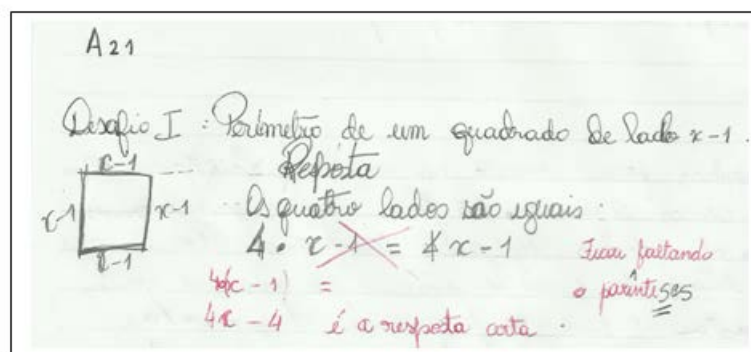 A21
Desafio I : Perímetro de um quadrado de lado x-1.
x-1
Resposta
x-1
x-1
Os quatro lados são iguais:
x-1
4 · x-1 = 4x-1
Ficou faltando
o parênteses
4(x-1) =
4x-4 é a resposta certa.